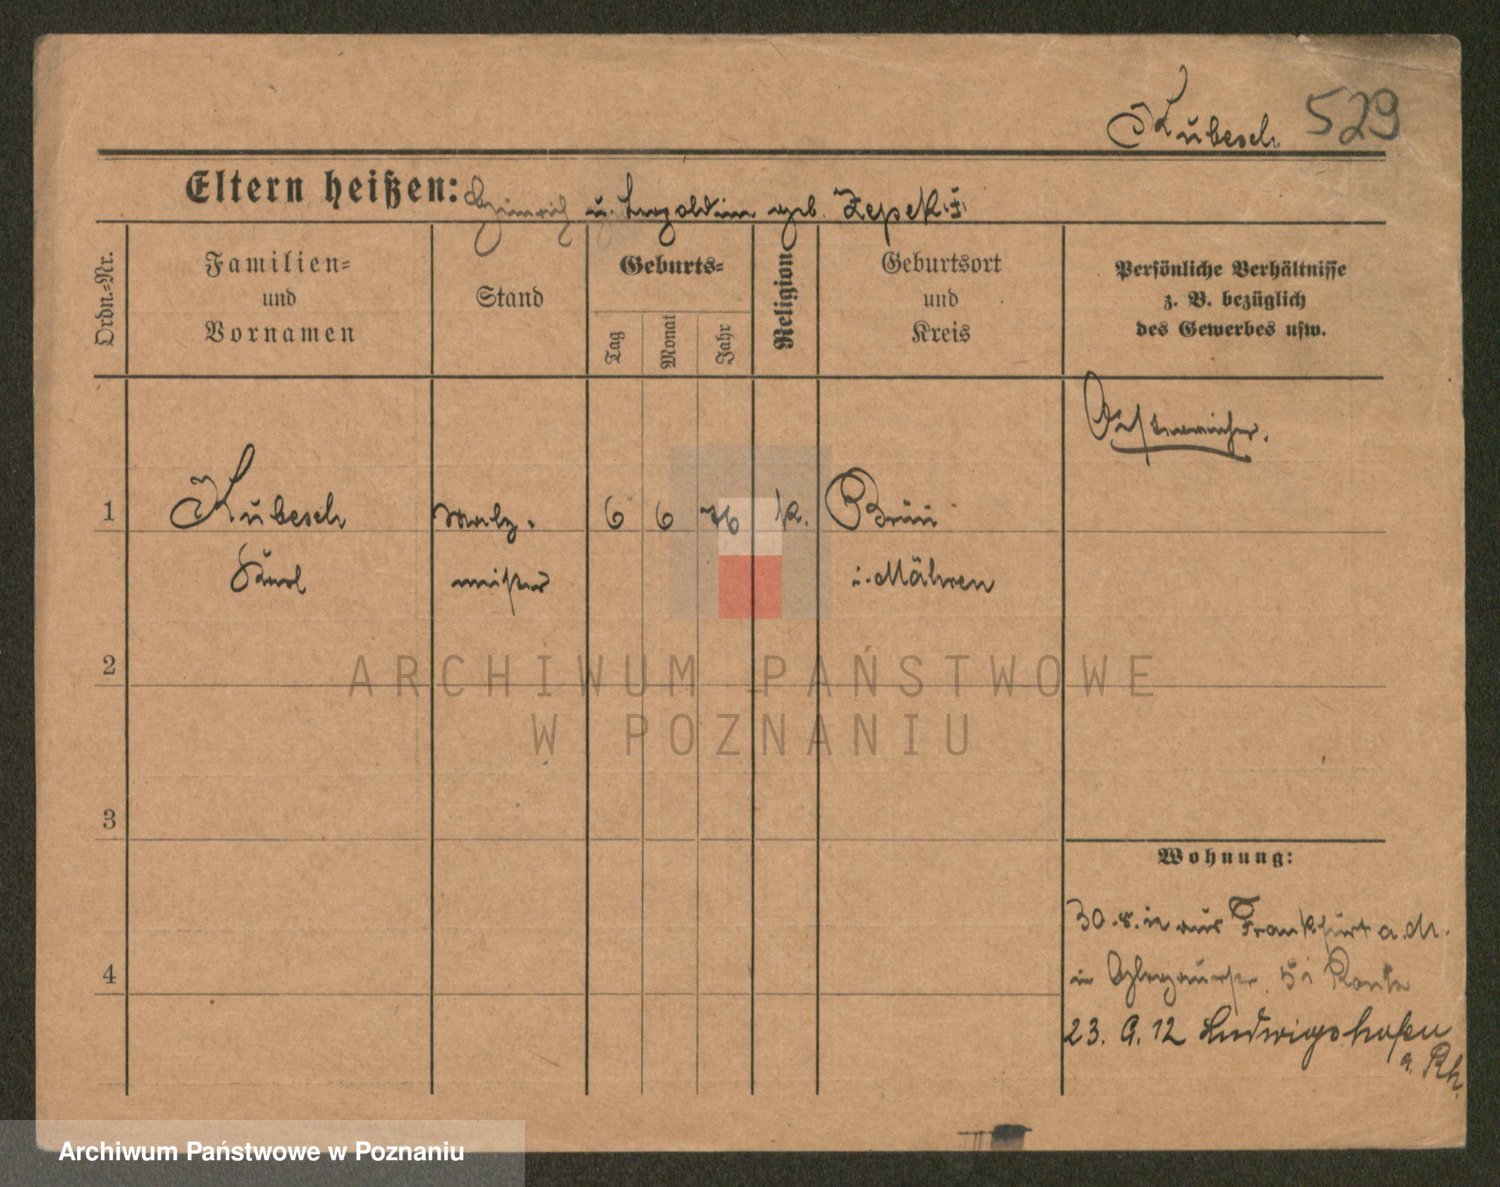 Kubesch 529
Eltern heißen: Heinrich u. Leopoldine geb. Zepek
Ordn.-Nr.
Familien-
und
Vornamen
Stand
Geburts-
Tag
Monat
Jahr
Religion
Geburtsort
und
Kreis
Persönliche Verhältnisse
z. B. bezüglich
des Gewerbes usw.
Oesterreicher.
1 Kubesch Malz- 6 6 76 k. Brünn
Karl meister i. Mähren
2
3
4
Wohnung:
30. 8. 12 aus Frankfurt a. M.
in
23. 9. 12 Ludwigshafen
a. Rh.
ARCHIWUM PAŃSTWOWE
W POZNANIU
Archiwum Państwowe w Poznaniu